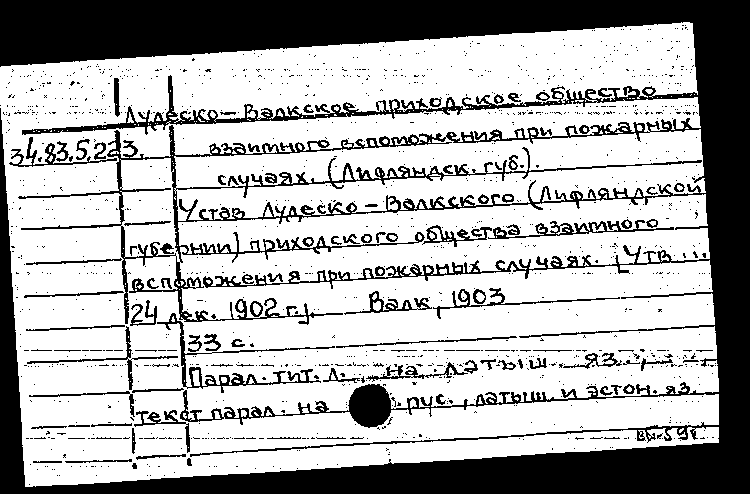 Лудеско-Валкское приходское общество
34.83.5.223. взаимного вспоможения при пожарных
случаях. (Лифляндск. губ.).
Устав Лудеско-Валкского (Лифляндской
губернии) приходского общества взаимного
вспоможения при пожарных случаях. [Утв...
24 дек. 1902 г.]. Валк, 1903
33 с.
Парал. тит. л. на латыш. яз.,
текст парал. на рус., латыш. и эстон. яз.